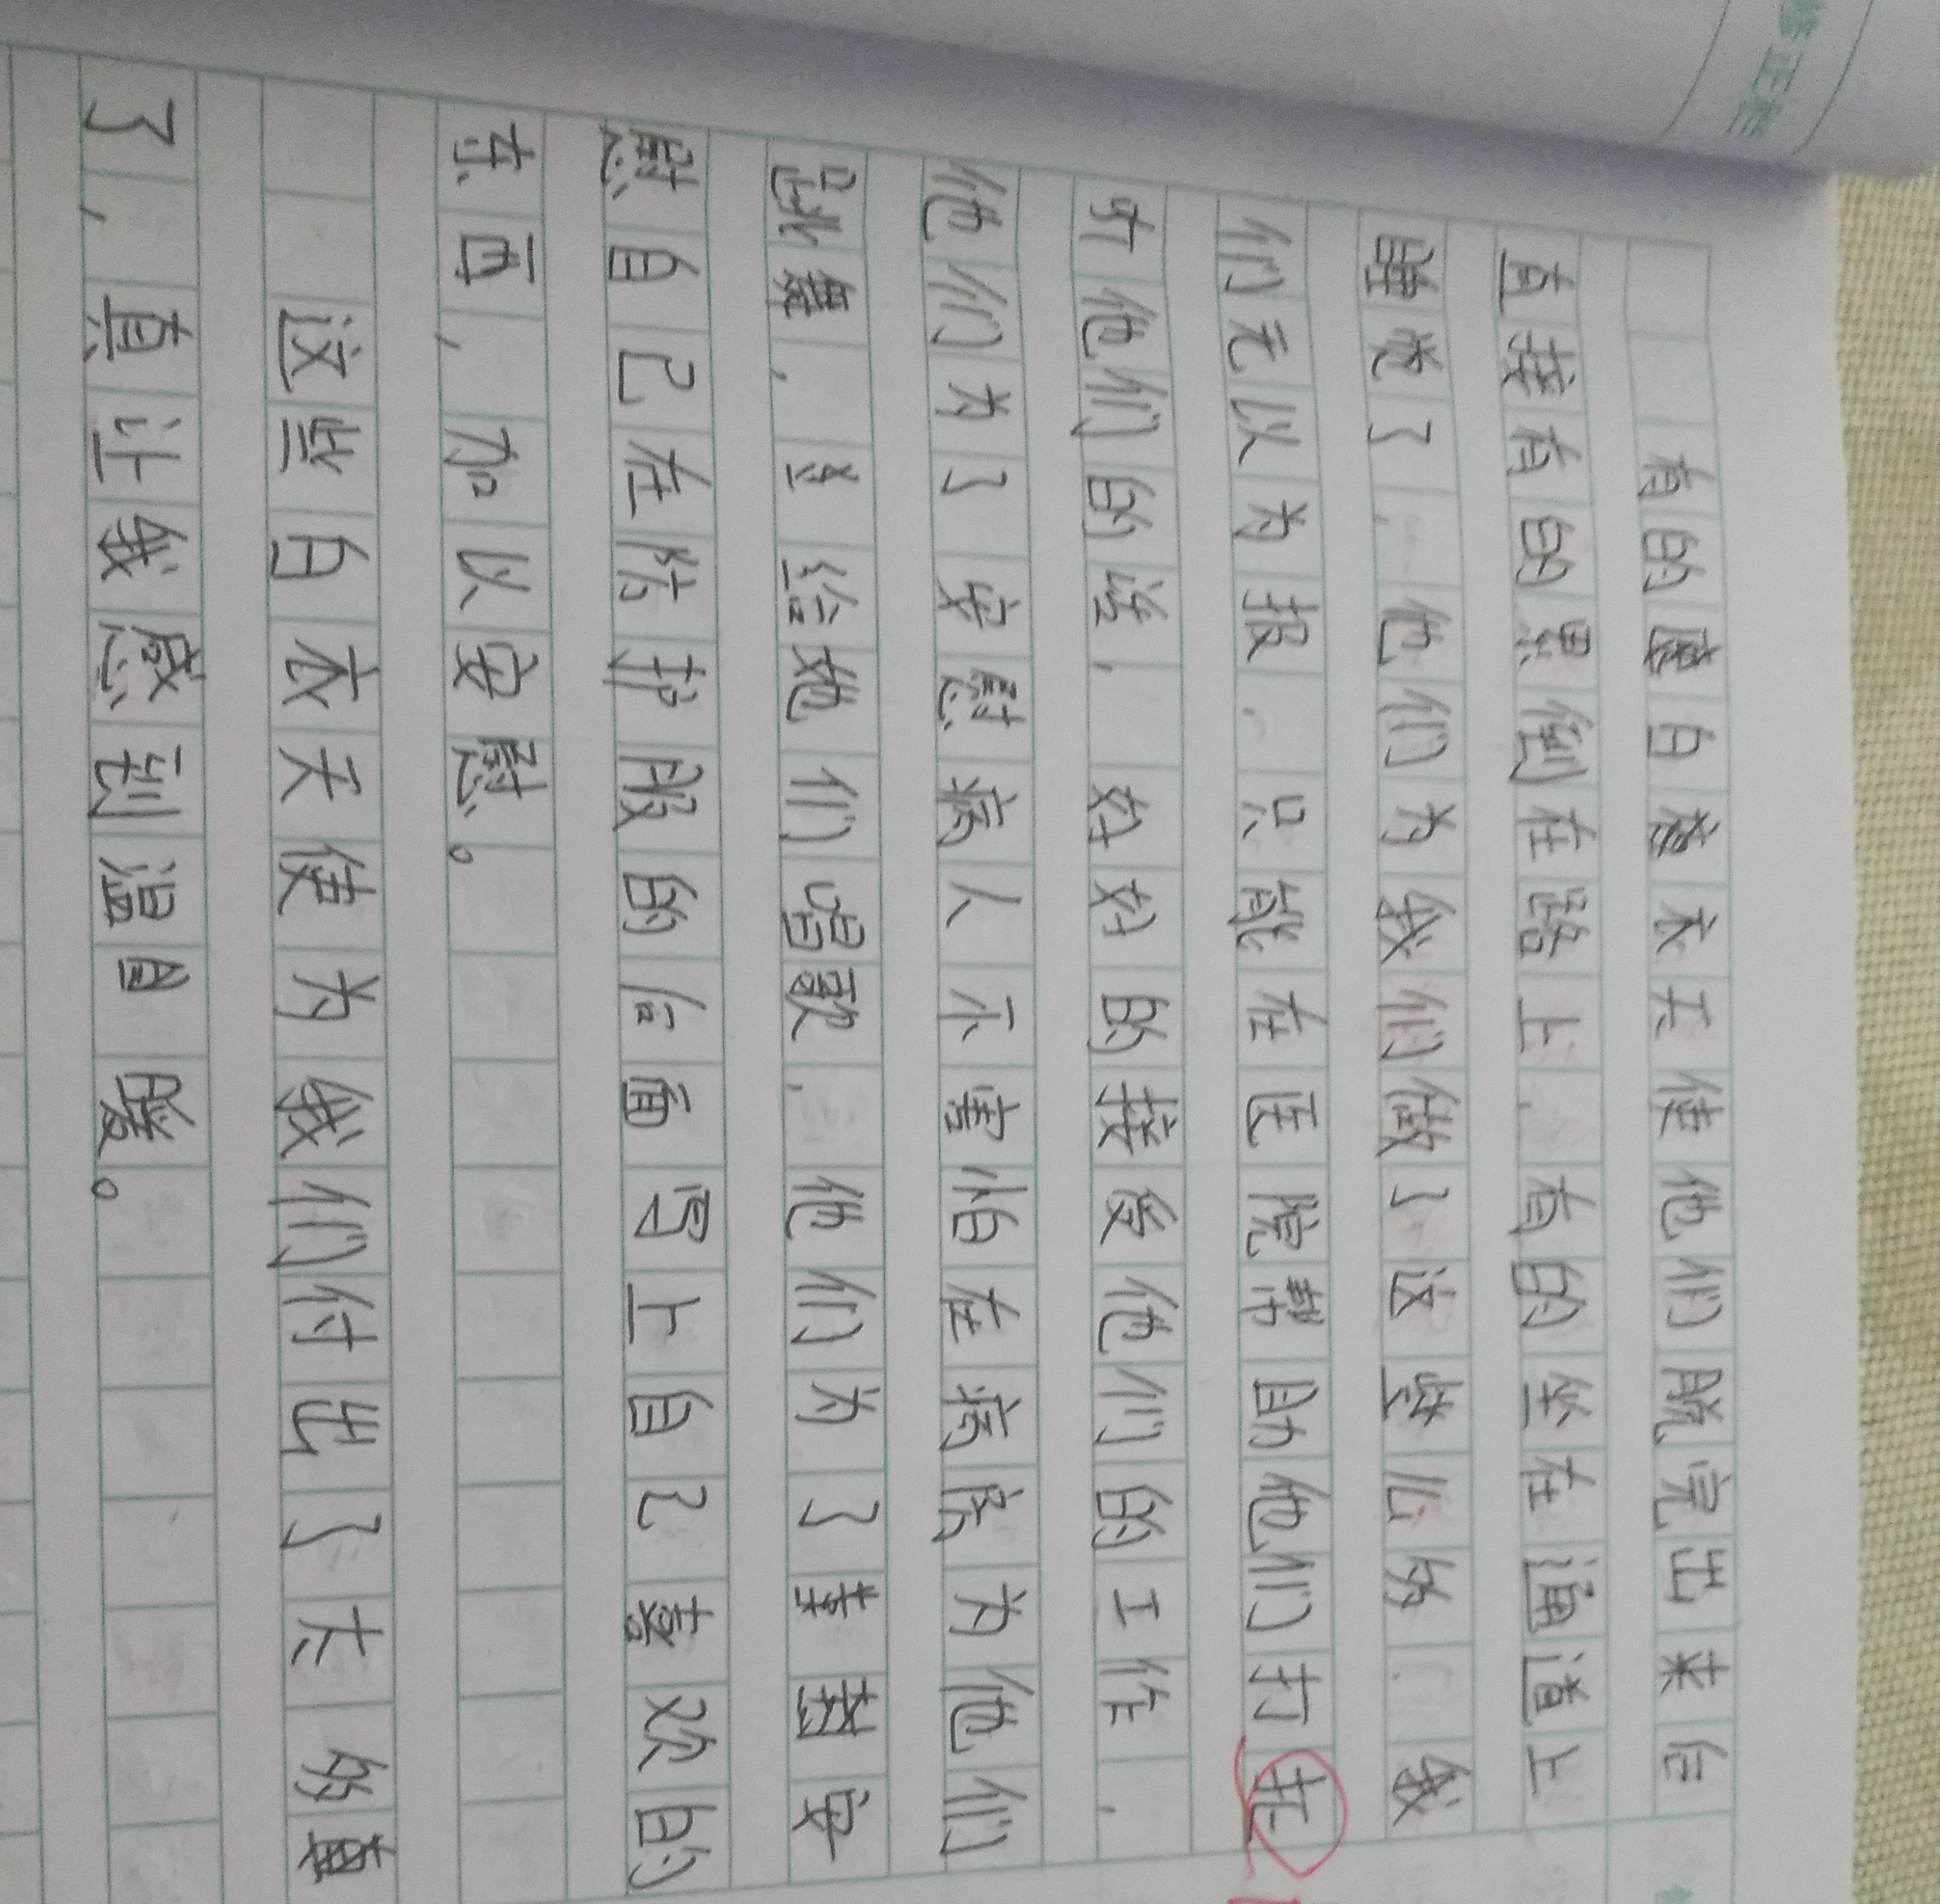 修正栏
有的白衣天使他们脱完出来后
直接有的累倒在路上，有的坐在通道上
睡觉了，他们为我们做了这么多，我
们无以为报，只能在医院帮助他们打扎
听他们的话，好好的接受他们的工作，
他们为了安慰病人不害怕在病房为他们
跳舞，给她们唱歌，他们为了想安
慰自己在防护服的后面写上自己喜欢的
东西，加以安慰。
这些白衣天使为我们付出了太多
了，真让我感到温暖。